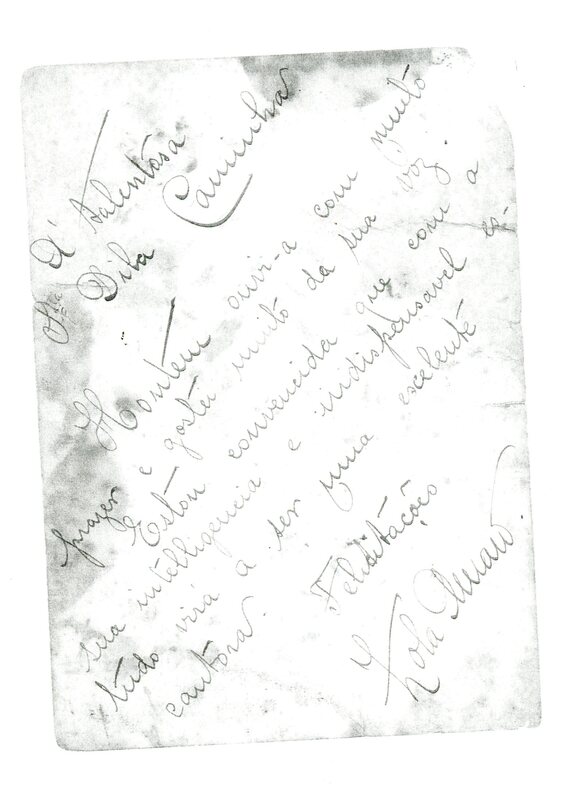 Á talentosa
Sta Dila Caminha
Hontem ouvi-a com muito
prazer e gostei muito da sua voz.
Estou convencida que com a
sua intelligencia e indispensavel es-
tudo virá a ser uma excelente
cantora. Felicitações
Zola Amaro